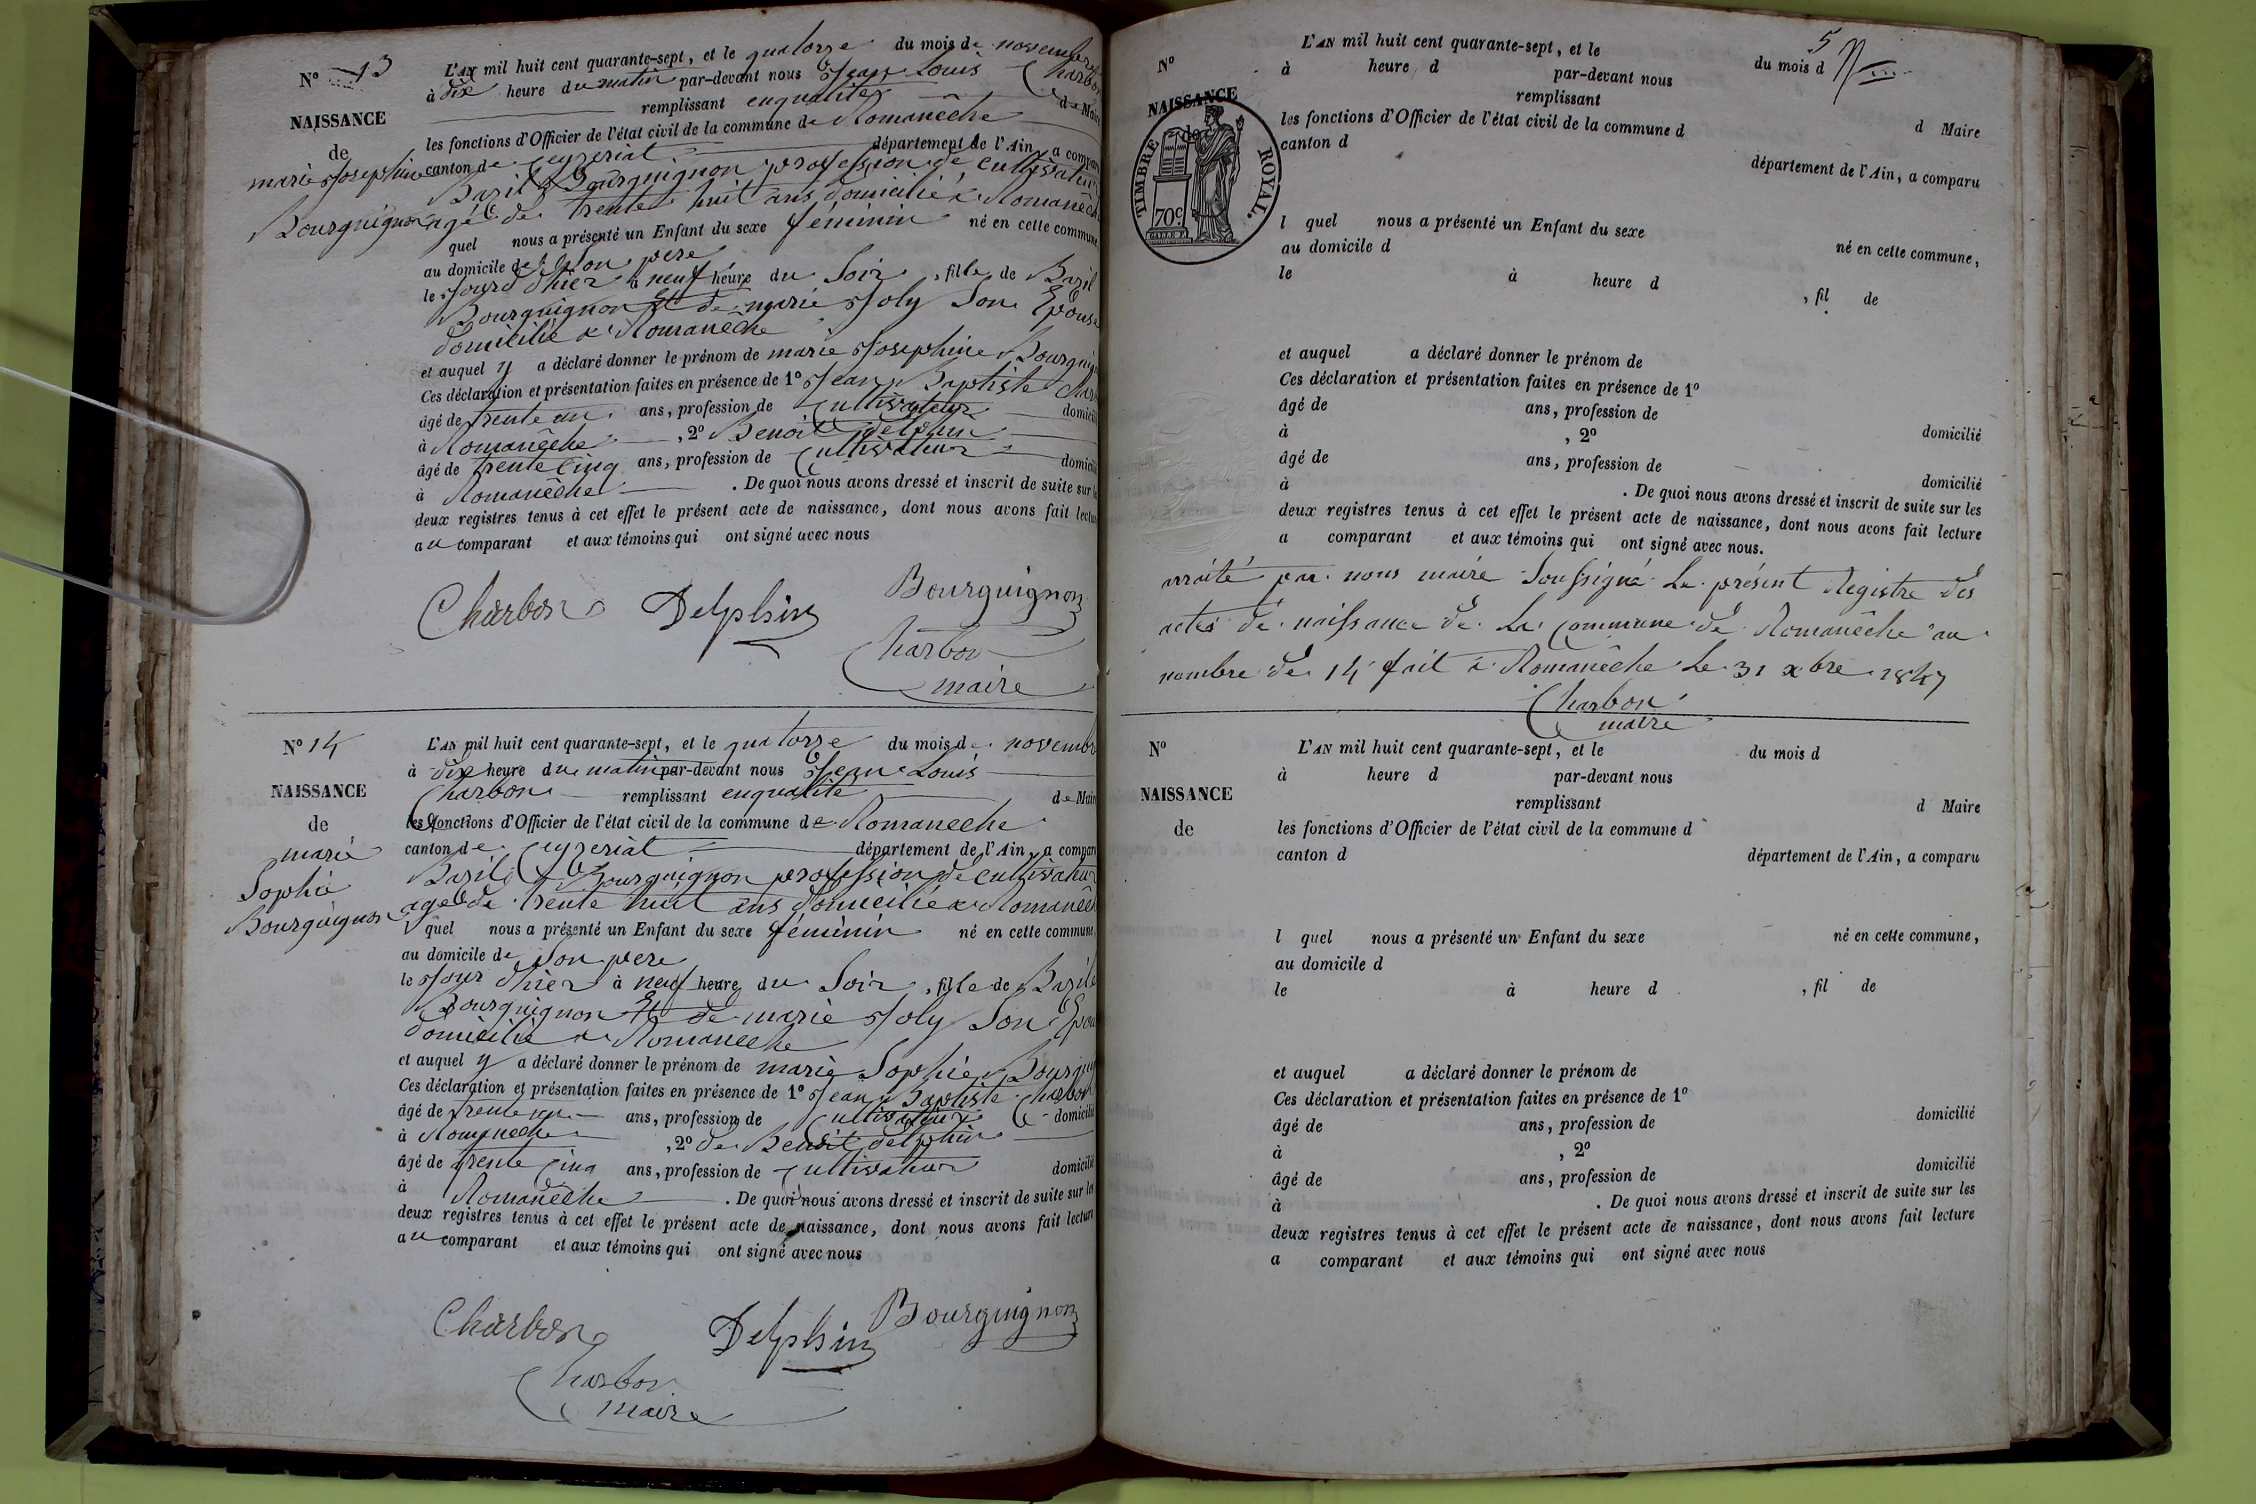 N° 13
NAISSANCE
de
marie Josephine
Bourguignon
L'AN mil huit cent quarante-sept, et le quatorze du mois de novembre
à dix heure du matin par-devant nous Jean Louis Charbon
remplissant enqualité de Maire
les fonctions d'Officier de l'état civil de la commune de Romanêche
canton de Ceyzeriat département de l'Ain, a comparu
Bazile Bourguignon profession de cultivateur
agé de trente huit ans domicilié a Romanêche
quel nous a présenté un Enfant du sexe feminin né en cette commune
au domicile de Son pere
le Jourd'hier à neuf heure du Soir, fille de Bazile
Bourguignon Et de marie Joly Son Epouse
domicilié a Romanêche
et auquel y a déclaré donner le prénom de marie Josephine Bourguign
Ces déclaration et présentation faites en présence de 1° Jean Baptiste Char
âgé de trente un ans, profession de Cultivateur domicilié
à Romanêche, 2° Benoit delphin
âgé de trente Cinq ans, profession de Cultivateur domicilié
à Romanêche. De quoi nous avons dressé et inscrit de suite sur les
deux registres tenus à cet effet le présent acte de naissance, dont nous avons fait lecture
au comparant et aux témoins qui ont signé avec nous
Charbon Delphin Bourguignon
Charbon
maire
N° 14
NAISSANCE
de
marie
Sophie
Bourguignon
L'AN mil huit cent quarante-sept, et le quatorze du mois de novembre
à dix heure du matin par-devant nous Jean Louis
Charbon remplissant enqualité de Maire
les fonctions d'Officier de l'état civil de la commune de Romanêche
canton de Ceyzeriat département de l'Ain, a comparu
Bazile Bourguignon profession de cultivateur
agé de trente huit ans domicilié a Romanêch
l quel nous a présenté un Enfant du sexe féminin né en cette commune
au domicile de Son pere
le Jour d'hier à neuf heure du Soir, fille de Bazile
Bourguignon Et de marie Joly Son Epou
domicilié a Romanêche
et auquel y a déclaré donner le prénom de marie Sophie Bourguig
Ces déclaration et présentation faites en présence de 1° Jean Baptiste Charbon
âgé de trente un ans, profession de Cultivateur domicilié
à Romanêche, 2° de Benoit delphin
âgé de trente Cinq ans, profession de Cultivateur domicilié
à Romanêche. De quoi nous avons dressé et inscrit de suite sur les
deux registres tenus à cet effet le présent acte de naissance, dont nous avons fait lecture
au comparant et aux témoins qui ont signé avec nous
Charbon Delphin Bourguignon
Charbon
maire
5
N°
NAISSANCE
de
TIMBRE ROYAL.
70c.
L'AN mil huit cent quarante-sept, et le du mois d
à heure d par-devant nous
remplissant d Maire
les fonctions d'Officier de l'état civil de la commune d
canton d département de l'Ain, a comparu
l quel nous a présenté un Enfant du sexe né en cette commune,
au domicile d
le à heure d , fil de
et auquel a déclaré donner le prénom de
Ces déclaration et présentation faites en présence de 1°
âgé de ans, profession de domicilié
à , 2°
âgé de ans, profession de domicilié
à . De quoi nous avons dressé et inscrit de suite sur les
deux registres tenus à cet effet le présent acte de naissance, dont nous avons fait lecture
a comparant et aux témoins qui ont signé avec nous.
arrêté par nous maire Soussigné Le présent Registre des
actes de naissance de La Commune de Romanêche au
nombre de 14 fait à Romanêche Le 31 xbre 1847
Charbon
maire
N°
NAISSANCE
de
L'AN mil huit cent quarante-sept, et le du mois d
à heure d par-devant nous
remplissant d Maire
les fonctions d'Officier de l'état civil de la commune d
canton d département de l'Ain, a comparu
l quel nous a présenté un Enfant du sexe né en cette commune,
au domicile d
le à heure d , fil de
et auquel a déclaré donner le prénom de
Ces déclaration et présentation faites en présence de 1°
âgé de ans, profession de domicilié
à , 2°
âgé de ans, profession de domicilié
à . De quoi nous avons dressé et inscrit de suite sur les
deux registres tenus à cet effet le présent acte de naissance, dont nous avons fait lecture
a comparant et aux témoins qui ont signé avec nous